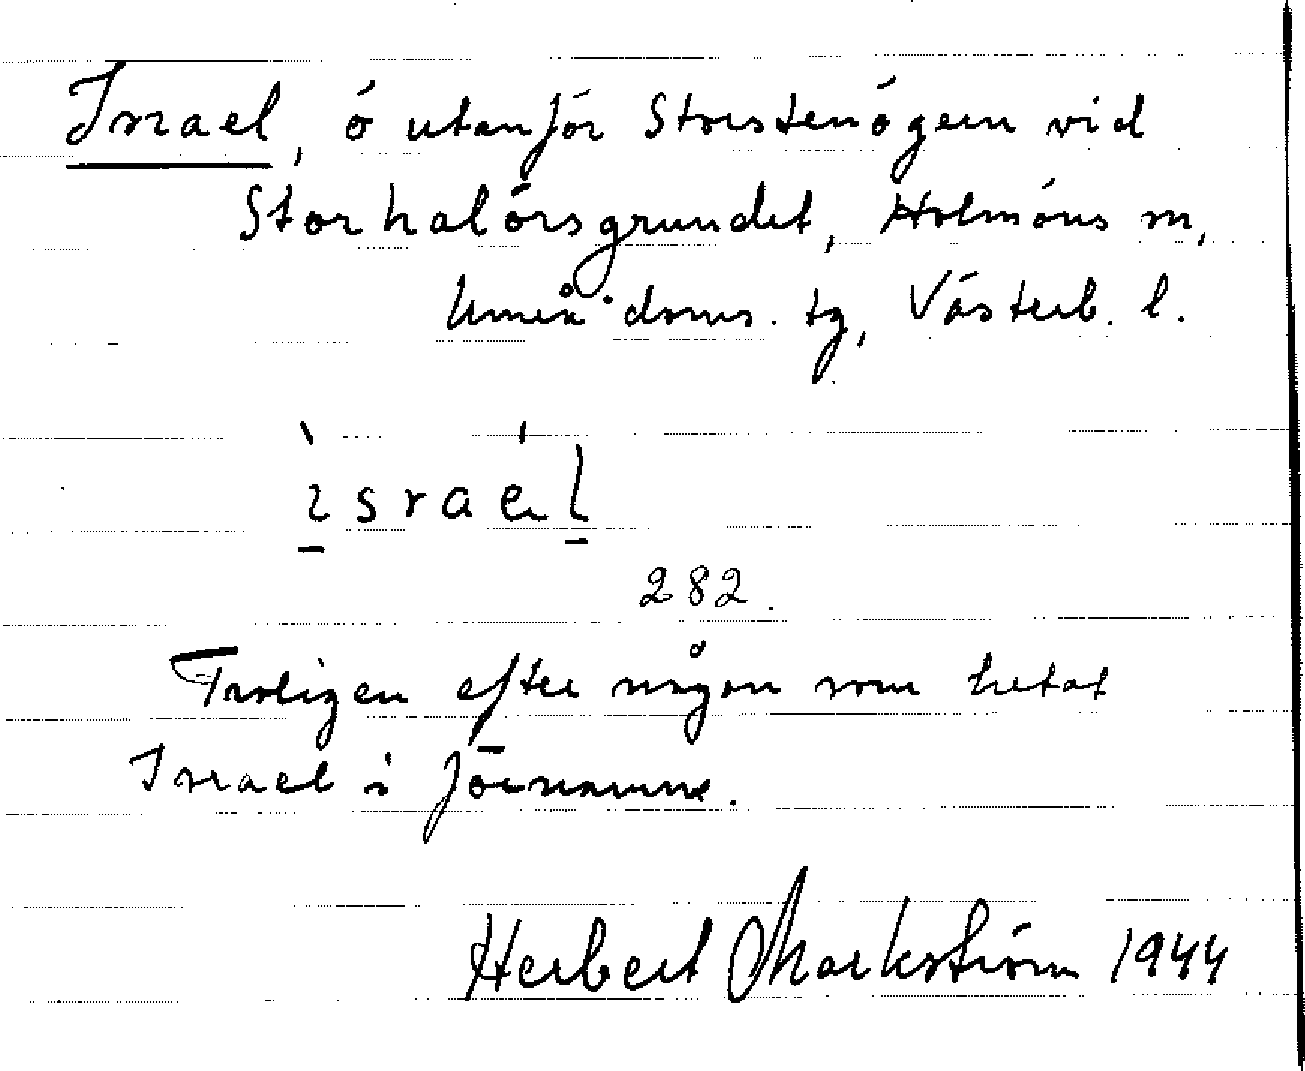 Israel, ö utanför Storstenögern vid
Storhalörsgrundet, Holmöns sn,
Umeå doms. tg, Västerb. l.
ìsraél
282.
Troligen efter någon som hetat
Israel i förnamn.
Herbert Markström 1944